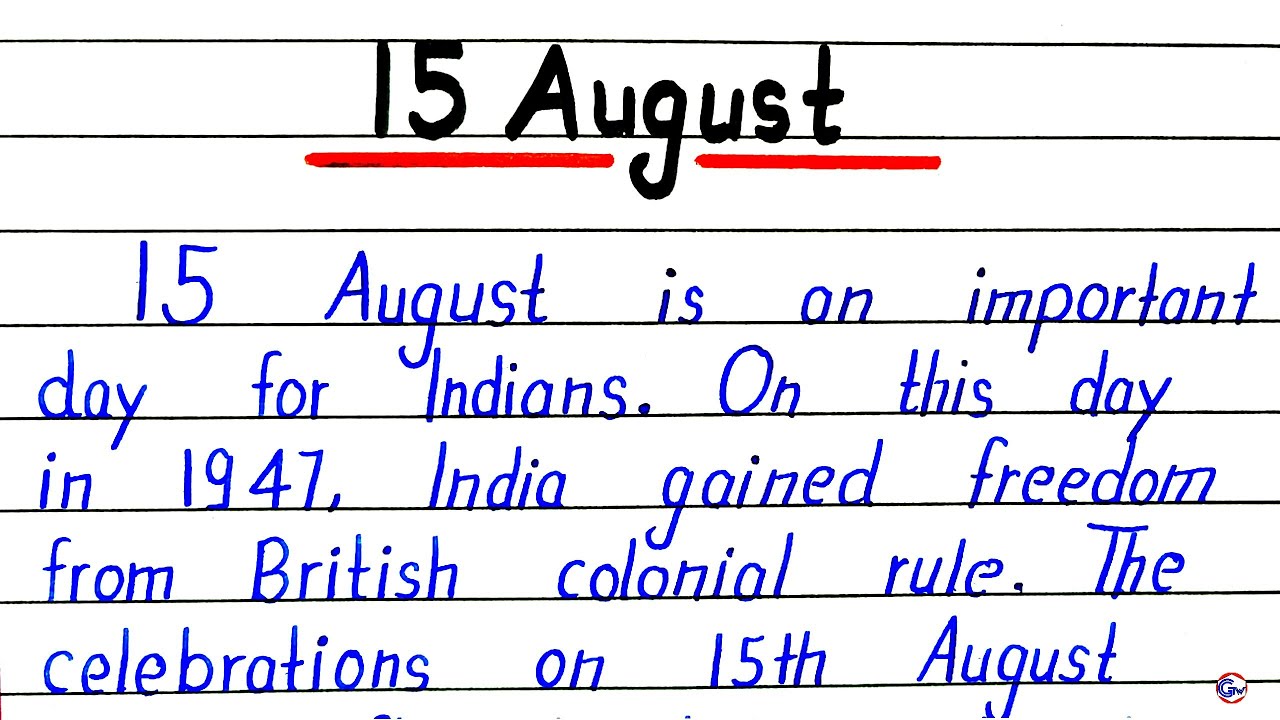 15 August
15 August is an important
day for Indians. On this day
in 1947, India gained freedom
from British colonial rule. The
celebrations on 15th August
GTW